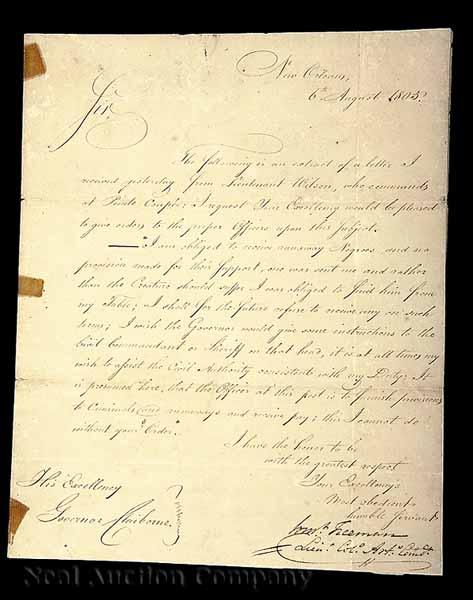 New Orleans,
6th August 1805.
Sir,
The following is an extract of a letter I
received yesterday from Lieutenant Wilson, who commands
at Pointe Coupée; I request Your Excellency would be pleased
to give orders to the proper Officers upon this subject.
— "I am obliged to receive runaway Negroes, and no
provision made for their Support, one was sent me and rather
than the Creature should suffer I was obliged to feed him from
my Table; I shall for the future refuse to receive any on such
terms; I wish the Governor would give some instructions to the
Civil Commandant or Sheriff on that head, it is at all times my
wish to assist the Civil Authority consistent with my Duty. It
is presumed here, that the Officer at this post is to furnish provisions
to Criminals and runaways and receive pay; this I cannot do
without your Order."
I have the honor to be
with the greatest respect
Your Excellency's
Most obedient
humble Servant
Freeman
Lieut. Col.
His Excellency
Governor Claiborne
Neal Auction Company